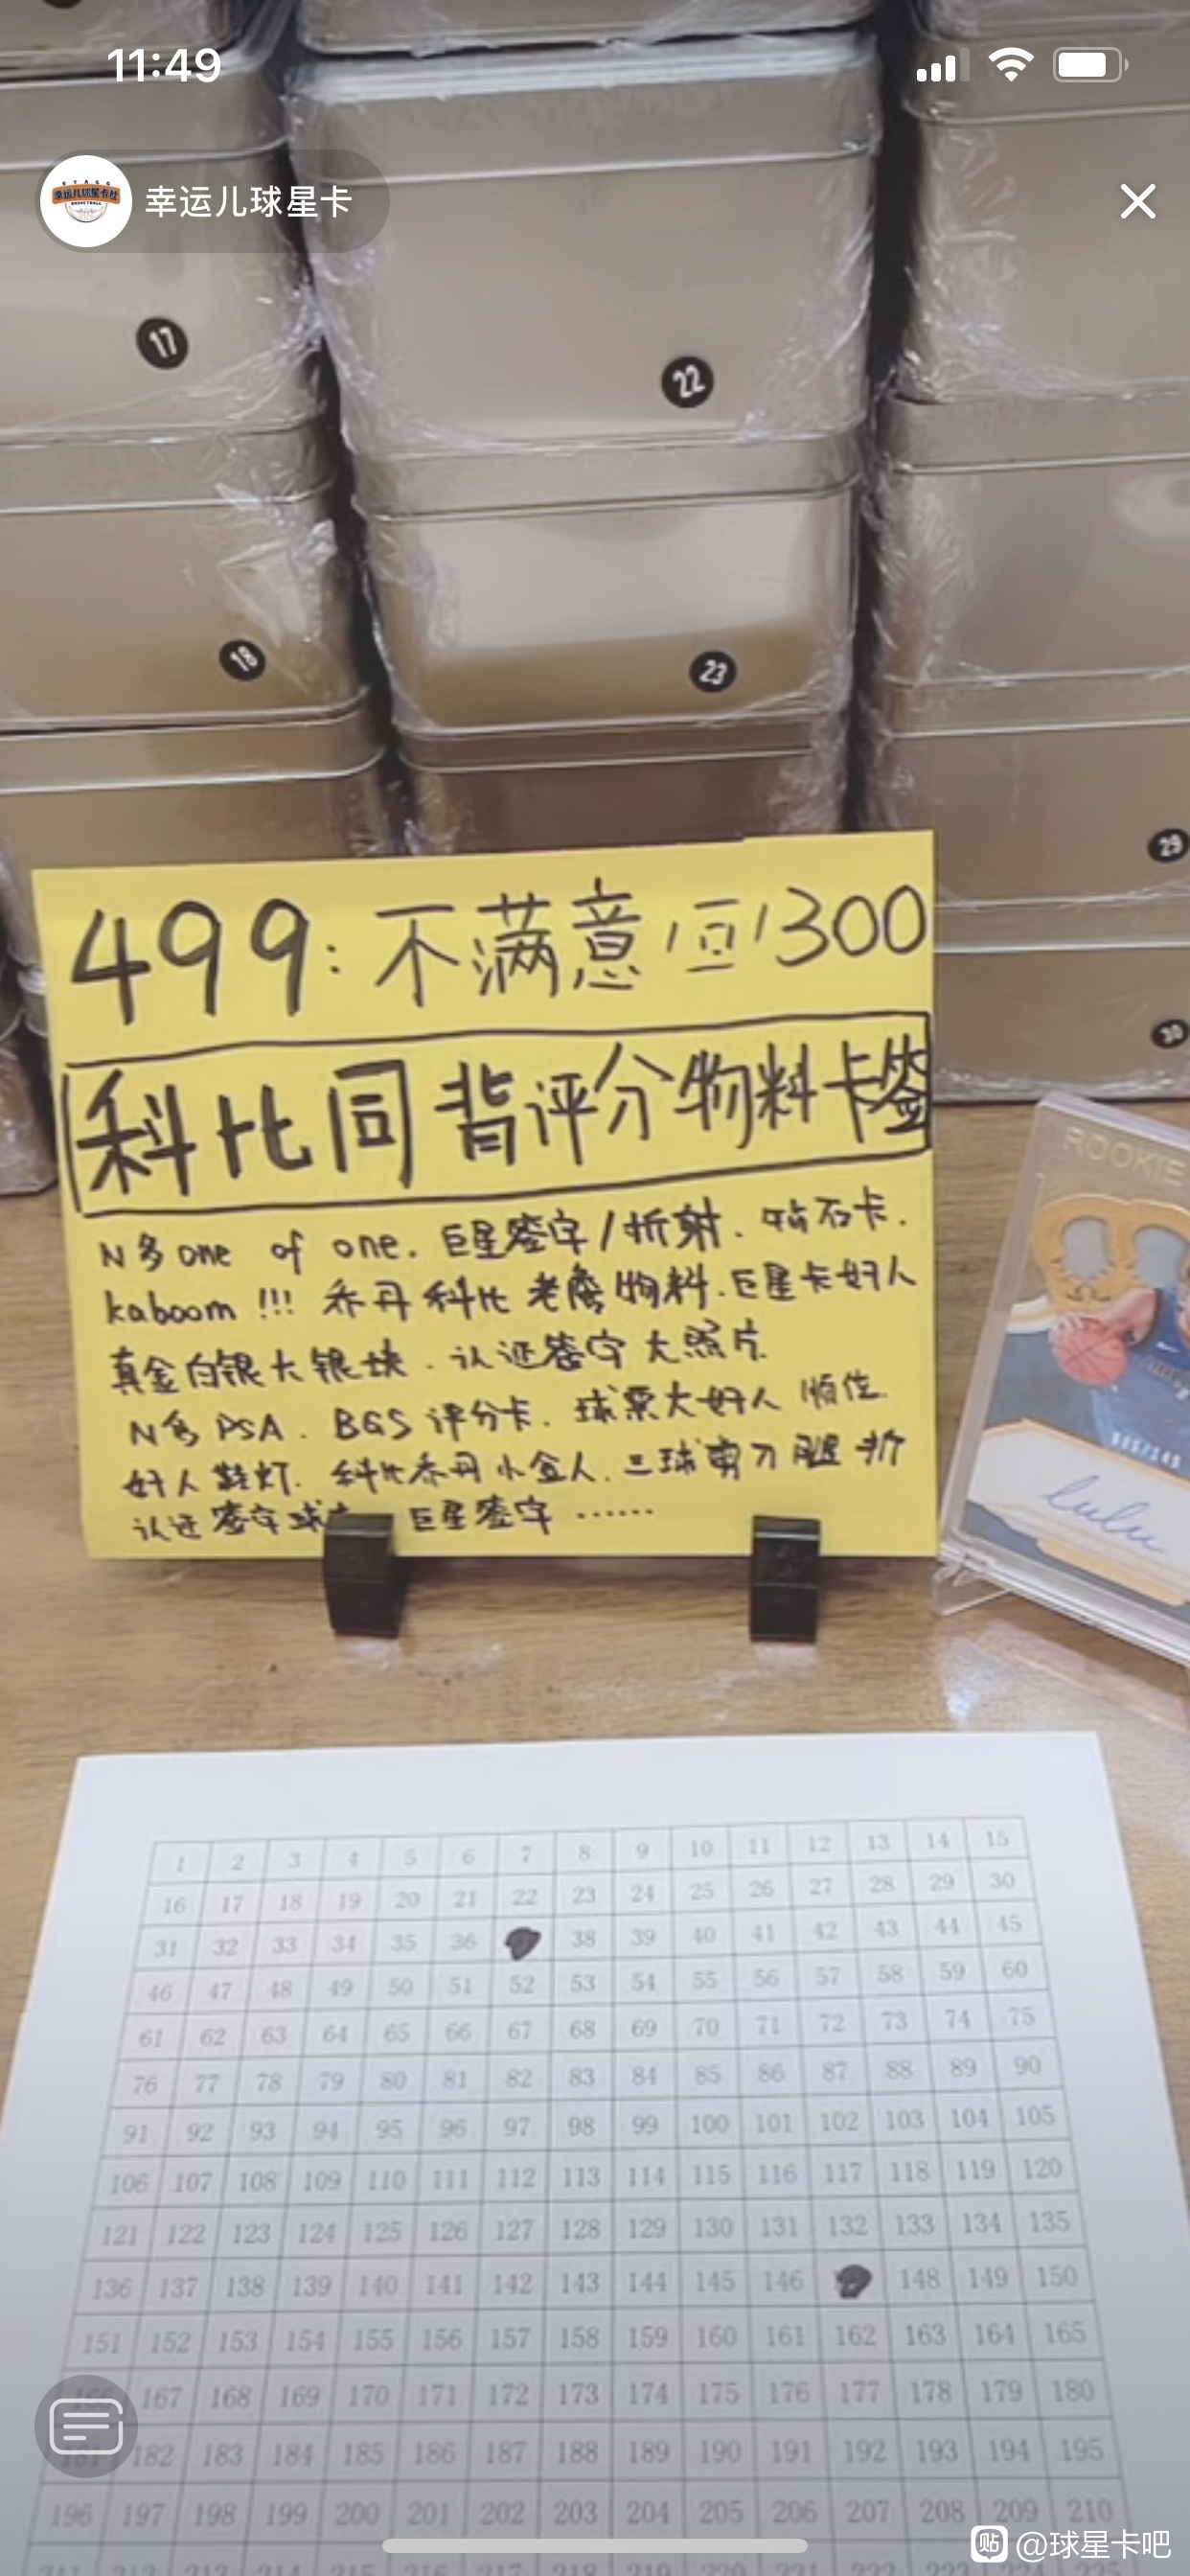 11:49
幸运儿球星卡
17
22
18
23
29
30
499:不满意 回300
科比同背评分物料卡签
N多one of one. 巨星签字/折射. 钻石卡.
kaboom !!! 乔丹 科比 老詹 物料. 巨星卡好人
真金白银大银块. 认证签字大照片.
N多PSA. BGS 评分卡. 球票大好人 顺位.
好人鞋灯. 科比乔丹小金人. 三球剪刀腿 折
认证签字球 巨星签字 ……
ROOKIE
lulu
1 2 3 4 5 6 7 8 9 10 11 12 13 14 15
16 17 18 19 20 21 22 23 24 25 26 27 28 29 30
31 32 33 34 35 36 38 39 40 41 42 43 44 45
46 47 48 49 50 51 52 53 54 55 56 57 58 59 60
61 62 63 64 65 66 67 68 69 70 71 72 73 74 75
76 77 78 79 80 81 82 83 84 85 86 87 88 89 90
91 92 93 94 95 96 97 98 99 100 101 102 103 104 105
106 107 108 109 110 111 112 113 114 115 116 117 118 119 120
121 122 123 124 125 126 127 128 129 130 131 132 133 134 135
136 137 138 139 140 141 142 143 144 145 146 148 149 150
151 152 153 154 155 156 157 158 159 160 161 162 163 164 165
167 168 169 170 171 172 173 174 175 176 177 178 179 180
182 183 184 185 186 187 188 189 190 191 192 193 194 195
196 197 198 199 200 201 202 203 204 205 206 207 208 209 210
贴 @球星卡吧